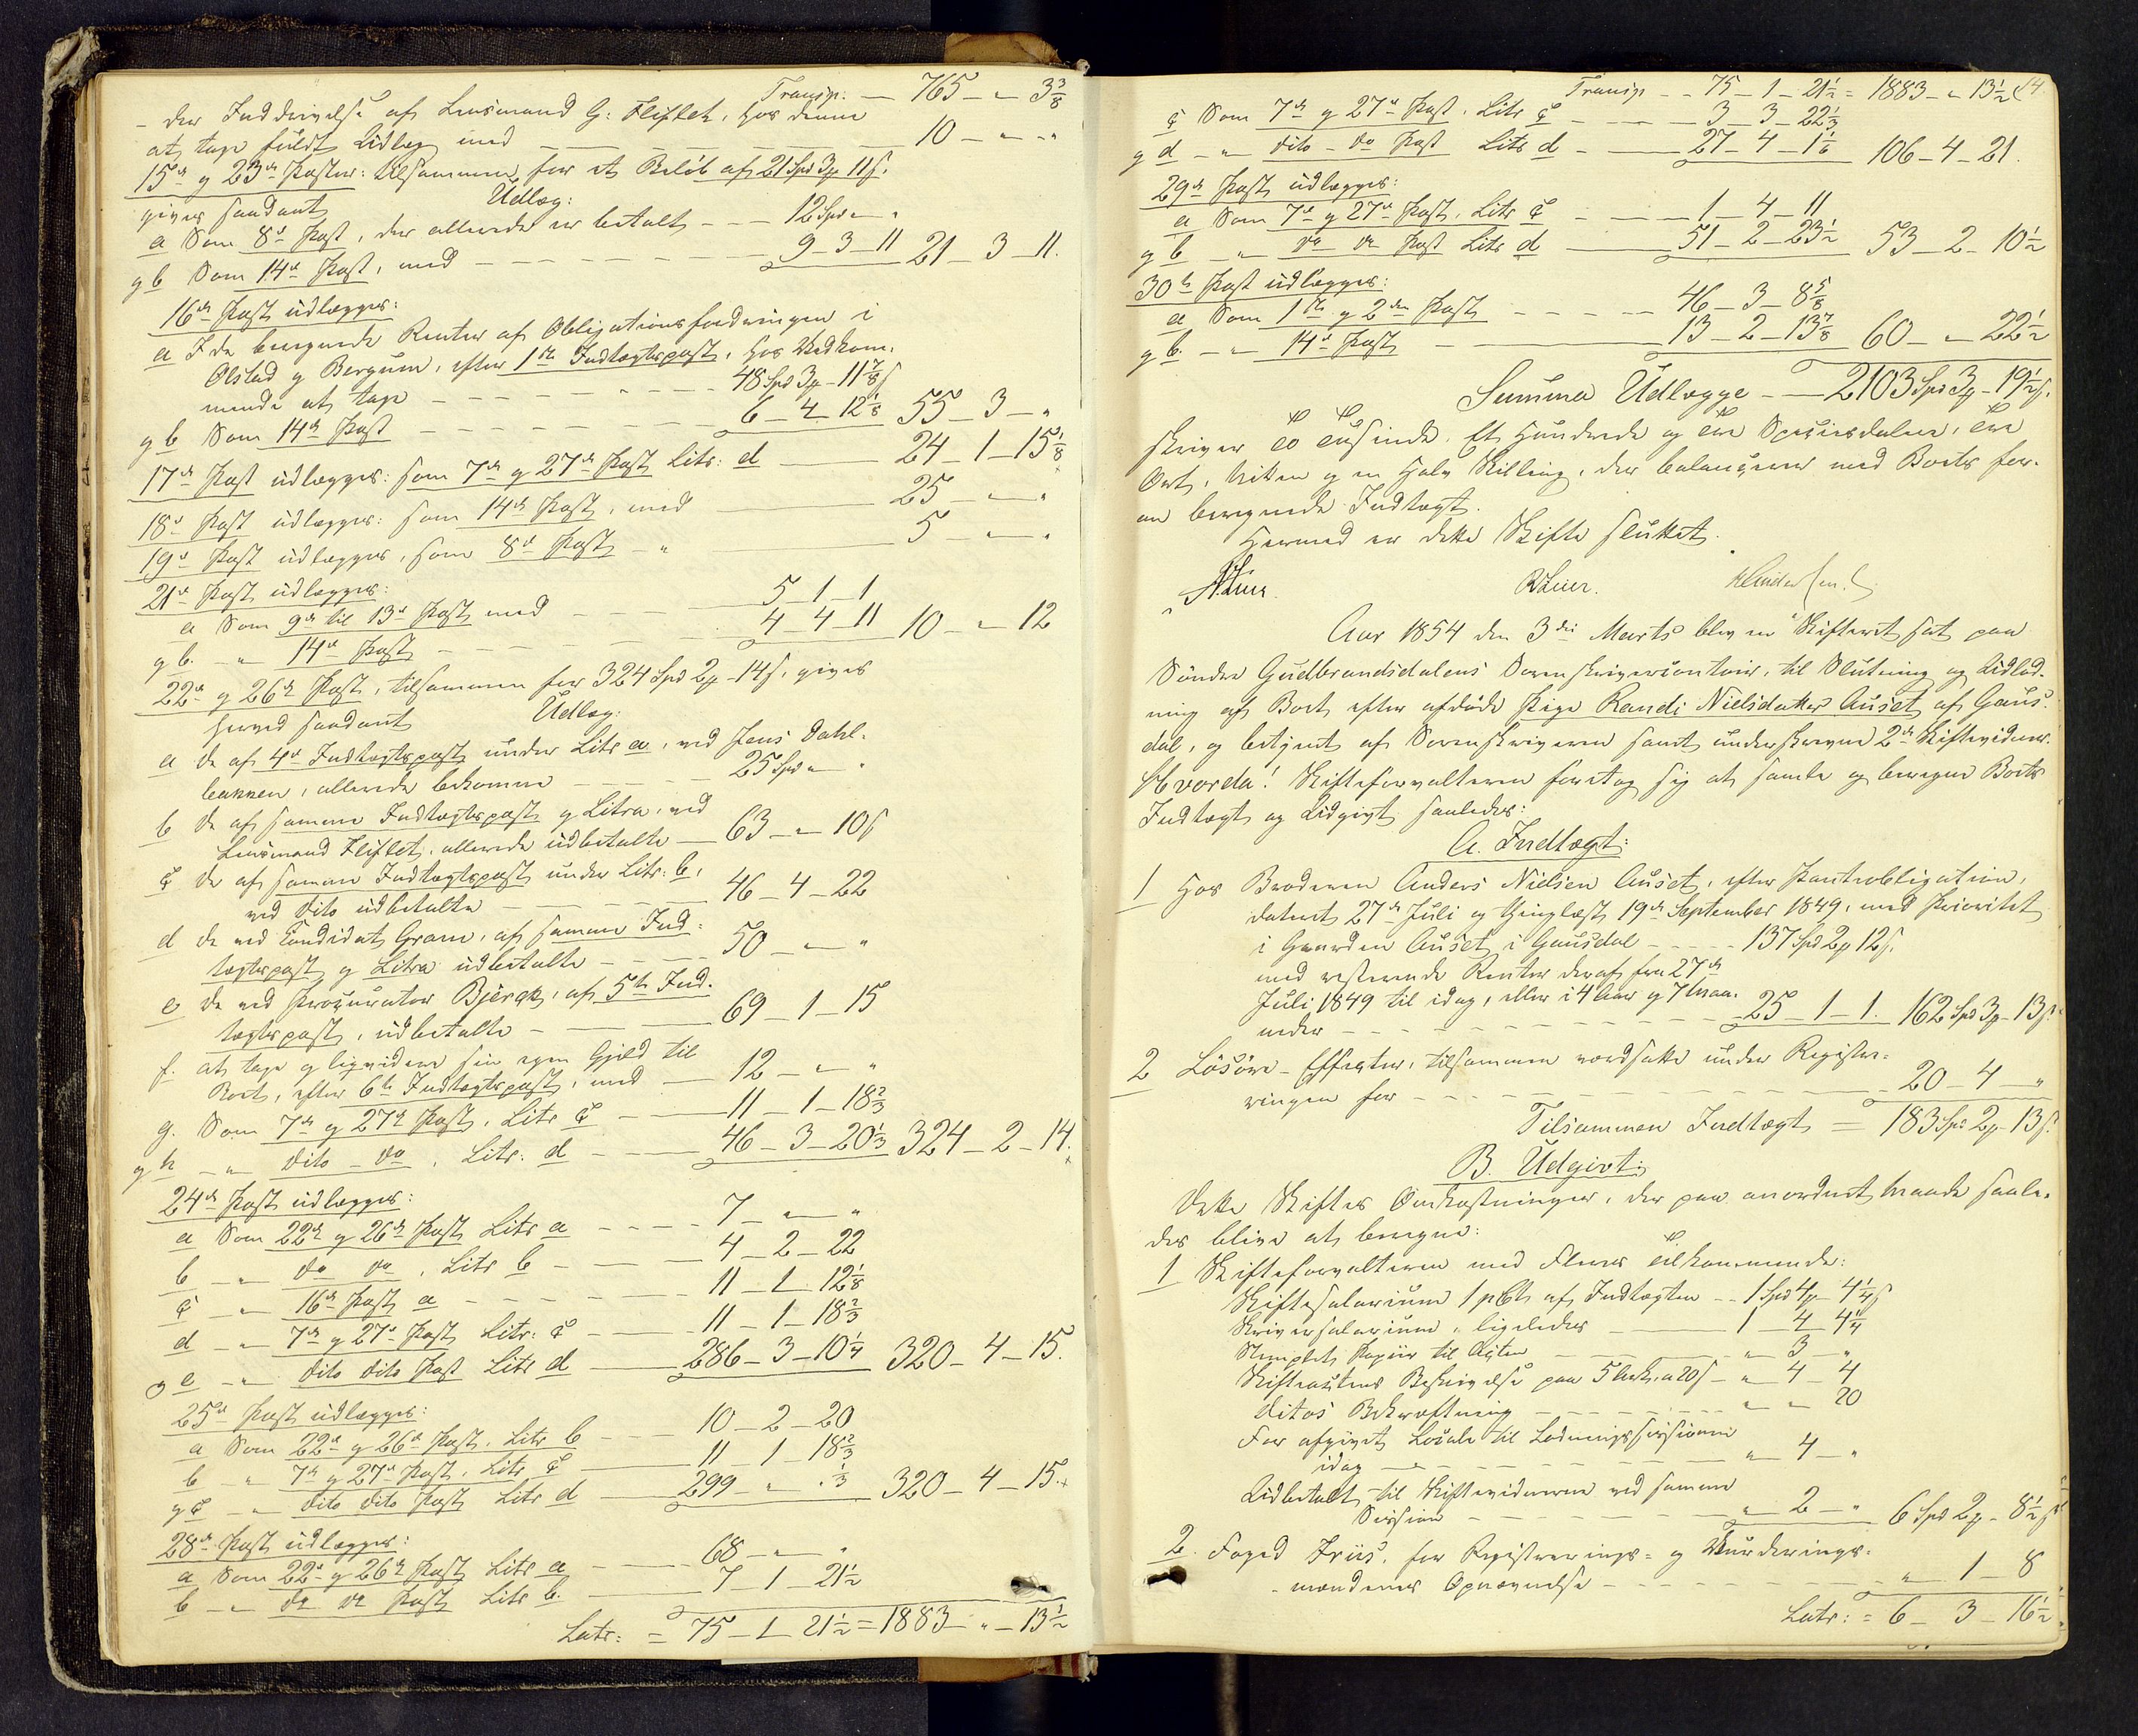 Transp. — 765 — " 3 3/8
– der Inddrivelse af Lensmand G: Fliflet, hos denne
at tage fuldt Udlæg med — 10 — " — "
15de og 23de Poster: tilsammen for et Beløb af 21 Spd 3 ℔ 11 s.
gives saadant Udlæg:
a Som 8de Post, der allerede er betalt — 12 Spd " "
og b Som 14de Post, med — 9 – 3 – 11 21 – 3 – 11.
16de Post udlægges:
a I de beregnede Renter af Obligationsfordringen i
Olstad og Bergum, efter 1ste Indtægtspost, hos Vedkom-
mende at tage — 48 Spd 3 – 11 7/8 s
og b Som 14de Post — 6 – 4 – 12 1/8 55 – 3 – "
17de Post udlægges: som 7de og 27de Post Litr: d — 24 – 1 – 15 1/8
18de Post udlægges: som 14de Post, med — 25 – " – "
19de Post udlægges, som 8de Post – " — 5 – " – "
21de Post udlægges:
a Som 9de til 13de Post med — 5 – 1 – 1
og b. – " 14de Post — 4 – 4 – 11 10 – " – 12
22de og 26de Post, tilsammen for 324 Spd 2 – 14 s, gives
herved saadant Udlæg:
a de af 4de Indtægtspost under Litr a, ved Jens Dahl-
bakken, allerede bekomne — 25 Spd " "
b de af samme Indtægtspost og Litra, ved
Lensmand Fliflet, allerede udbetalte — 63 – " – 10 s
c de af samme Indtægtspost under Litr: b,
ved dito udbetalte — 46 – 4 – 22
d de ved Candidat Gram, af samme Ind-
tægtspost og Litra udbetalte — 50 – " – "
e de ved Procurator Bjerck, af 5te Ind-
tægtspost, udbetalte — 69 – 1 – 15
f. at tage og liqvidere sin egen Gjeld til
Boet, efter 6te Indtægtspost, med — 12 – " – "
g. Som 7de og 27de Post, Litr c — 11 – 1 – 18 2/3
og h – " dito – do, Litr: d — 46 – 3 – 20 1/3 324 – 2 – 14.
24de Post udlægges:
a Som 22de og 26de Post Litr a — 7 – " – "
b – " do do, Litr b — 4 – 2 – 22
c – " 16de Post a — 11 – 1 – 12 1/8
d – " 7de og 27de Post, Litr: c — 11 – 1 – 18 2/3
og e – " dito dito Post Litr d — 286 – 3 – 10 1/4 320 – 4 – 15.
25de Post udlægges:
a Som 22de og 26de Post, Litr b — 10 – 2 – 20
b – " 7de og 27de Post, Litr c — 11 – 1 – 18 2/3
og c – " dito dito Post Litr d — 299 – " – " 1/3 320 – 4 – 15.
28de Post udlægges:
a Som 22de og 26de Post, Litr a — 68 – " – "
b – " do do Post Litr b. — 7 – 1 – 21 1/2
Latr: = 75 – 1 – 21 1/2 = 1883 – " – 13 1/2
Transp – 75 – 1 – 21 1/2 = 1883 – " 13 1/2 14.
c Som 7de og 27de Post, Litr c — 3 – 3 – 22 1/3
og d – " dito – do Post Litr d — 27 – 4 – 1 1/6 106 – 4 – 21.
29de Post udlægges:
a Som 7de og 27de Post, Litr c — 1 – 4 – 11
og b – " do do Post Litr d — 51 – 2 – 23 1/2 53 – 2 – 10 1/2
30te Post udlægges:
a Som 1ste og 2den Post — 46 – 3 – 8 5/8
og b. – " 14de Post — 13 – 2 – 13 7/8 60 – " – 22 1/2
Summa Udlægge — 2103 Spd 3 – 19 1/2 s.
skriver To Tusinde, Et Hundrede og Tre Speciesdaler, Tre
Ort, Nitten og en Halv Skilling, der balancerer med Boets for-
an beregnede Indtægt.
Hermed er dette Skifte sluttet.
Aar 1854 den 3die Marts blev en Skifteret sat paa
Søndre Gudbrandsdalens Sorenskrivercontoir, til Slutning og Udlod-
ning af Boet efter afdøde Pige Randi Nielsdatter Auset af Gaus-
dal, og betjent af Sorenskriveren samt underskrevne 2de Skiftevidner.
Hvorda! Skifteforvalteren foretog sig at samle og beregne Boets
Indtægt og Udgivt saaledes:
A. Indtægt:
1 Hos Broderen Anders Nielsen Auset, efter Pantobligation,
dateret 27de Juli og thinglæst 19de September 1849, med Prioritet
i Gaarden Auset i Gausdal — 137 Spd 2 12 s.
med resterende Renter deraf fra 27de
Juli 1849 til idag, eller i 4 Aar og 7 Maa-
neder — 25 – 1 – 1. 162 Spd 3 – 13 s.
2 Løsøre-Effecter, tilsammen værdsatte under Registre-
ringen for — 20 – 4 – "
Tilsammen Indtægt = 183 Spd 2 – 13 s.
B. Udgivt:
Dette Skiftes Omkostninger, der paa anordnet Maade saale-
des blive at beregne:
1 Skifteforvalteren med Fleres Tilkommende:
Skiftesalarium 1 pCt af Indtægten — 1 Spd 4 – 4 1/4 s
Skriversalarium, ligeledes — 1 4 – 4 1/4
Stemplet Papiir til Acten — " 3 – "
Skifteactens Beskrivelse paa 5 Ark, a 20 s – " 4 – 4
Ditos Bekræftning — " " 20
For afgivet Locale til Lodningssessionen
idag — " 4 – "
Udbetalt til Skiftevidnerne ved samme
Session — " 2 – " 6 Spd 2 – 8 1/2 s
2. Foged Friis, for Registrerings- og Vurderings-
mændenes Opnævnelse — " 1 – 8
Latr: = 6 – 3 – 16 1/2